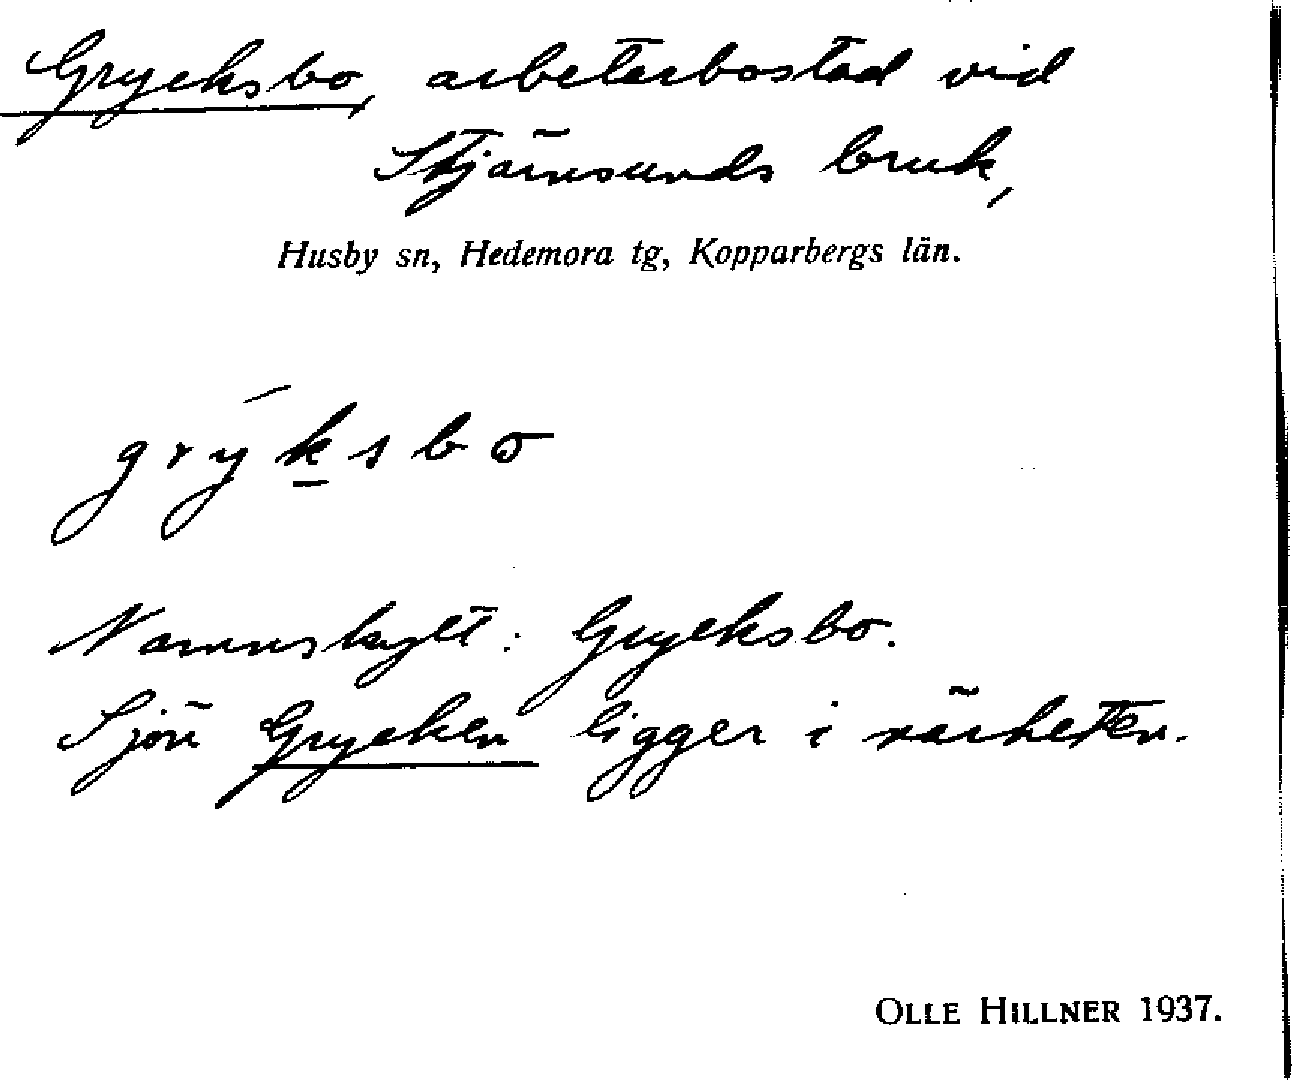 Grycksbo, arbetarbostad vid
Stjärnsunds bruk,
Husby sn, Hedemora tg, Kopparbergs län.
grýksbo
Namnskylt: Grycksbo.
Sjön Grycken ligger i närheten.
OLLE HILLNER 1937.